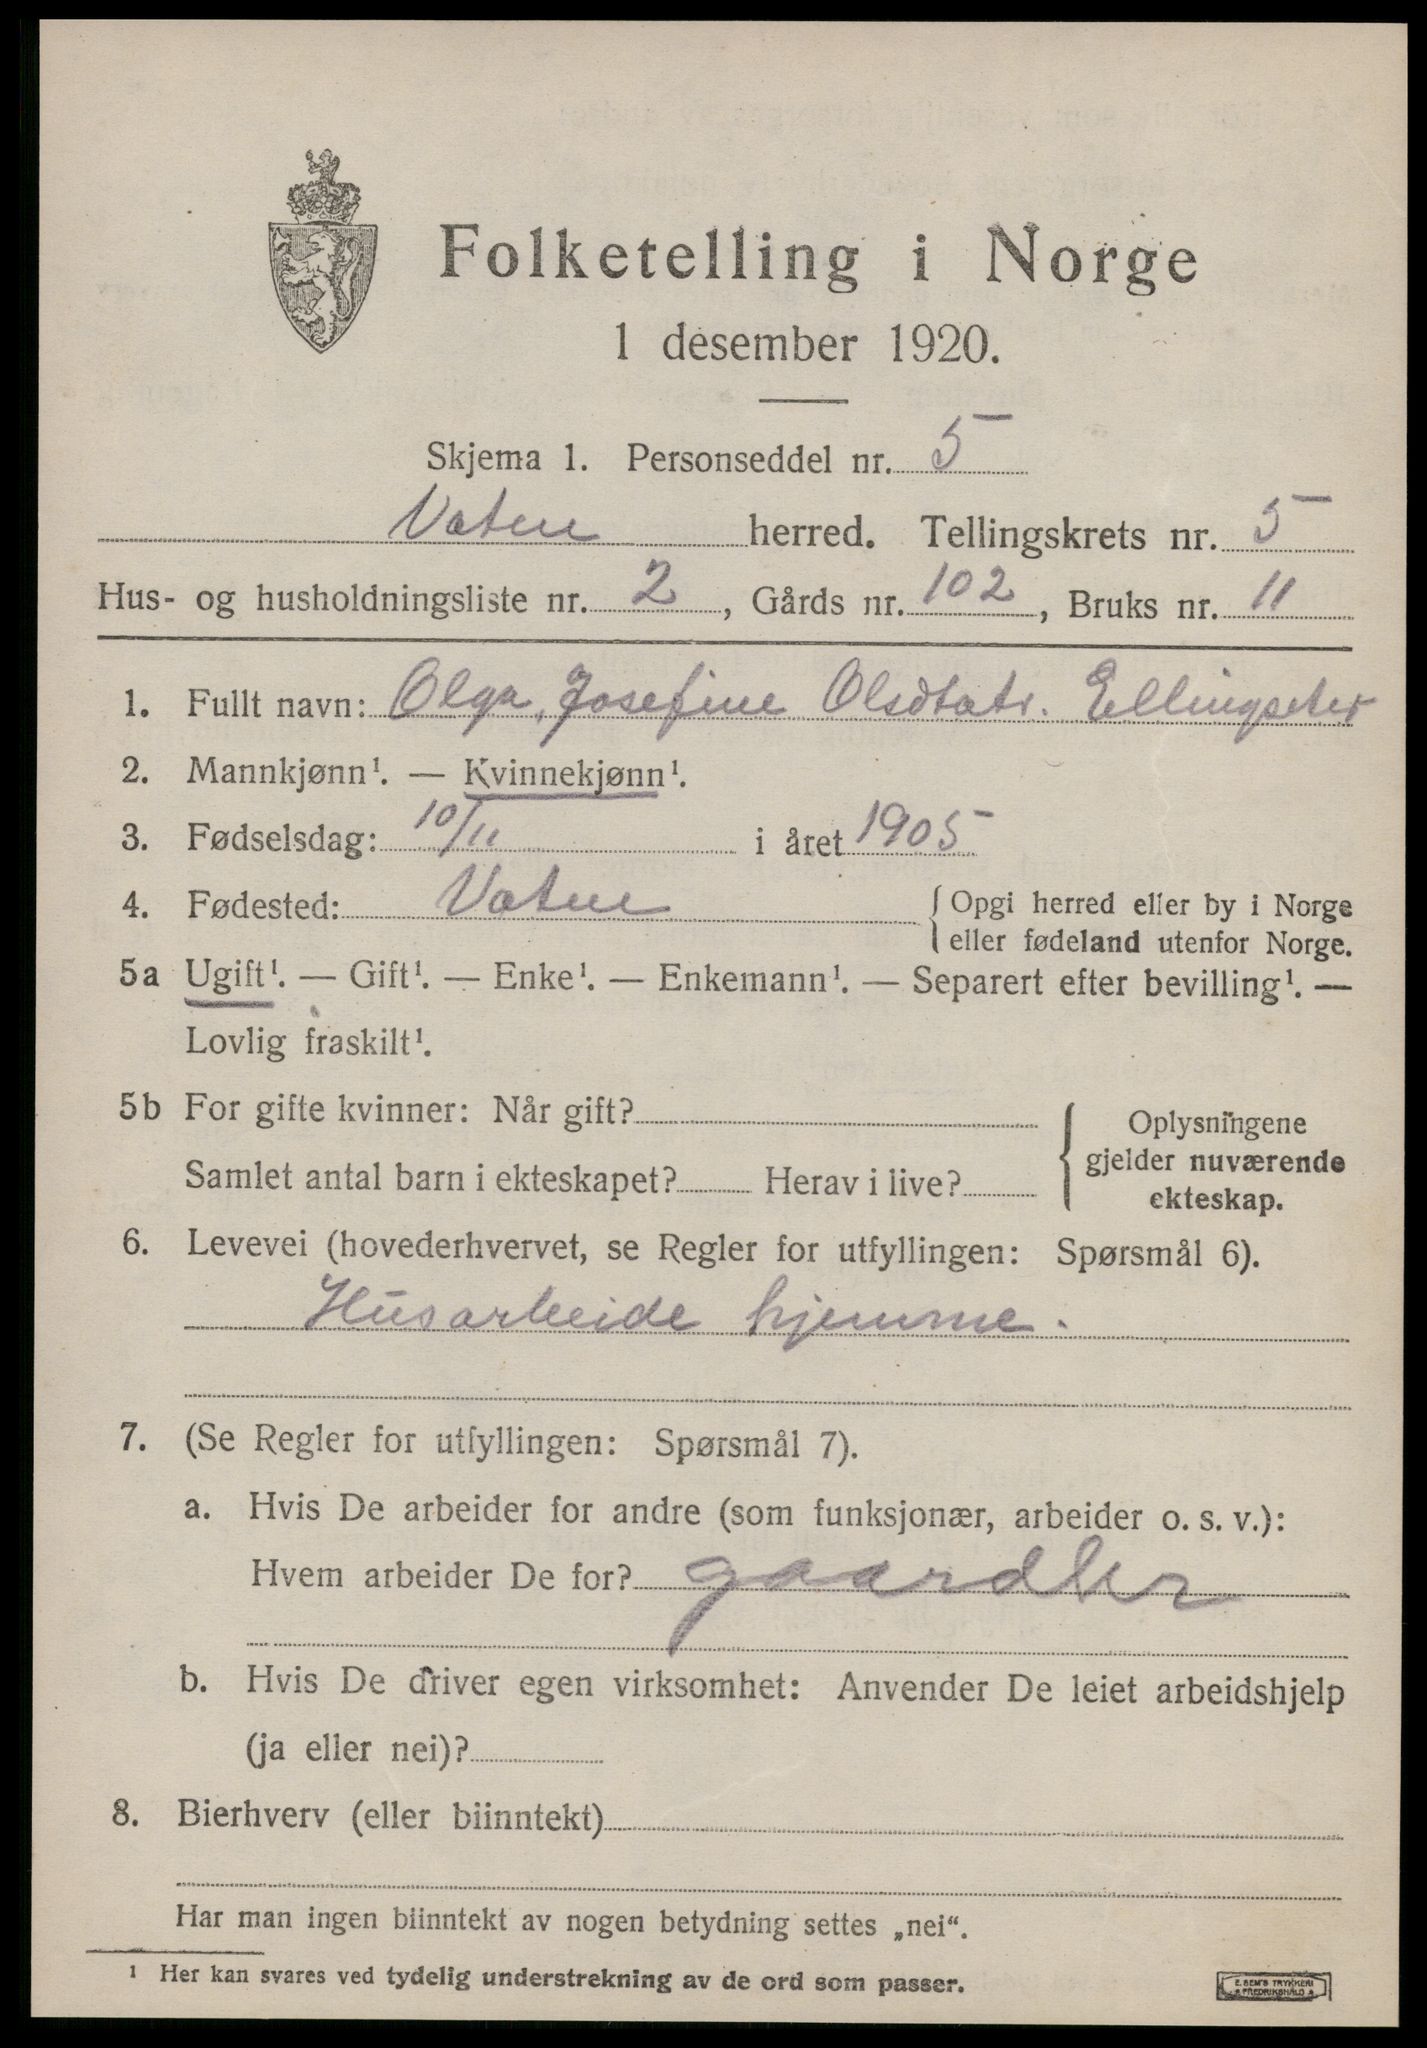 Folketelling i Norge
1 desember 1920.
Skjema 1. Personseddel nr. 5
Vatne herred. Tellingskrets nr. 5
Hus- og husholdningsliste nr. 2, Gårds nr. 102, Bruks nr. 11
1. Fullt navn: Olga Josefine Olsdtatr. Ellingseter
2. Mannkjønn¹. — Kvinnekjønn¹.
3. Fødselsdag: 10/11 i året 1905
4. Fødested: Vatne { Opgi herred eller by i Norge
eller fødeland utenfor Norge.
5a Ugift¹. — Gift¹. — Enke¹. — Enkemann¹. — Separert efter bevilling¹. —
Lovlig fraskilt¹.
5b For gifte kvinner: Når gift?
Samlet antal barn i ekteskapet? Herav i live?
{ Oplysningene
gjelder nuværende
ekteskap.
6. Levevei (hovederhvervet, se Regler for utfyllingen: Spørsmål 6).
Husarbeide hjemme.
7. (Se Regler for utfyllingen: Spørsmål 7).
a. Hvis De arbeider for andre (som funksjonær, arbeider o. s. v.):
Hvem arbeider De for?
b. Hvis De driver egen virksomhet: Anvender De leiet arbeidshjelp
(ja eller nei)?
8. Bierhverv (eller biinntekt)
Har man ingen biinntekt av nogen betydning settes „nei“.
¹ Her kan svares ved tydelig understrekning av de ord som passer.
E. SEM'S TRYKKERI
FREDRIKSHALD